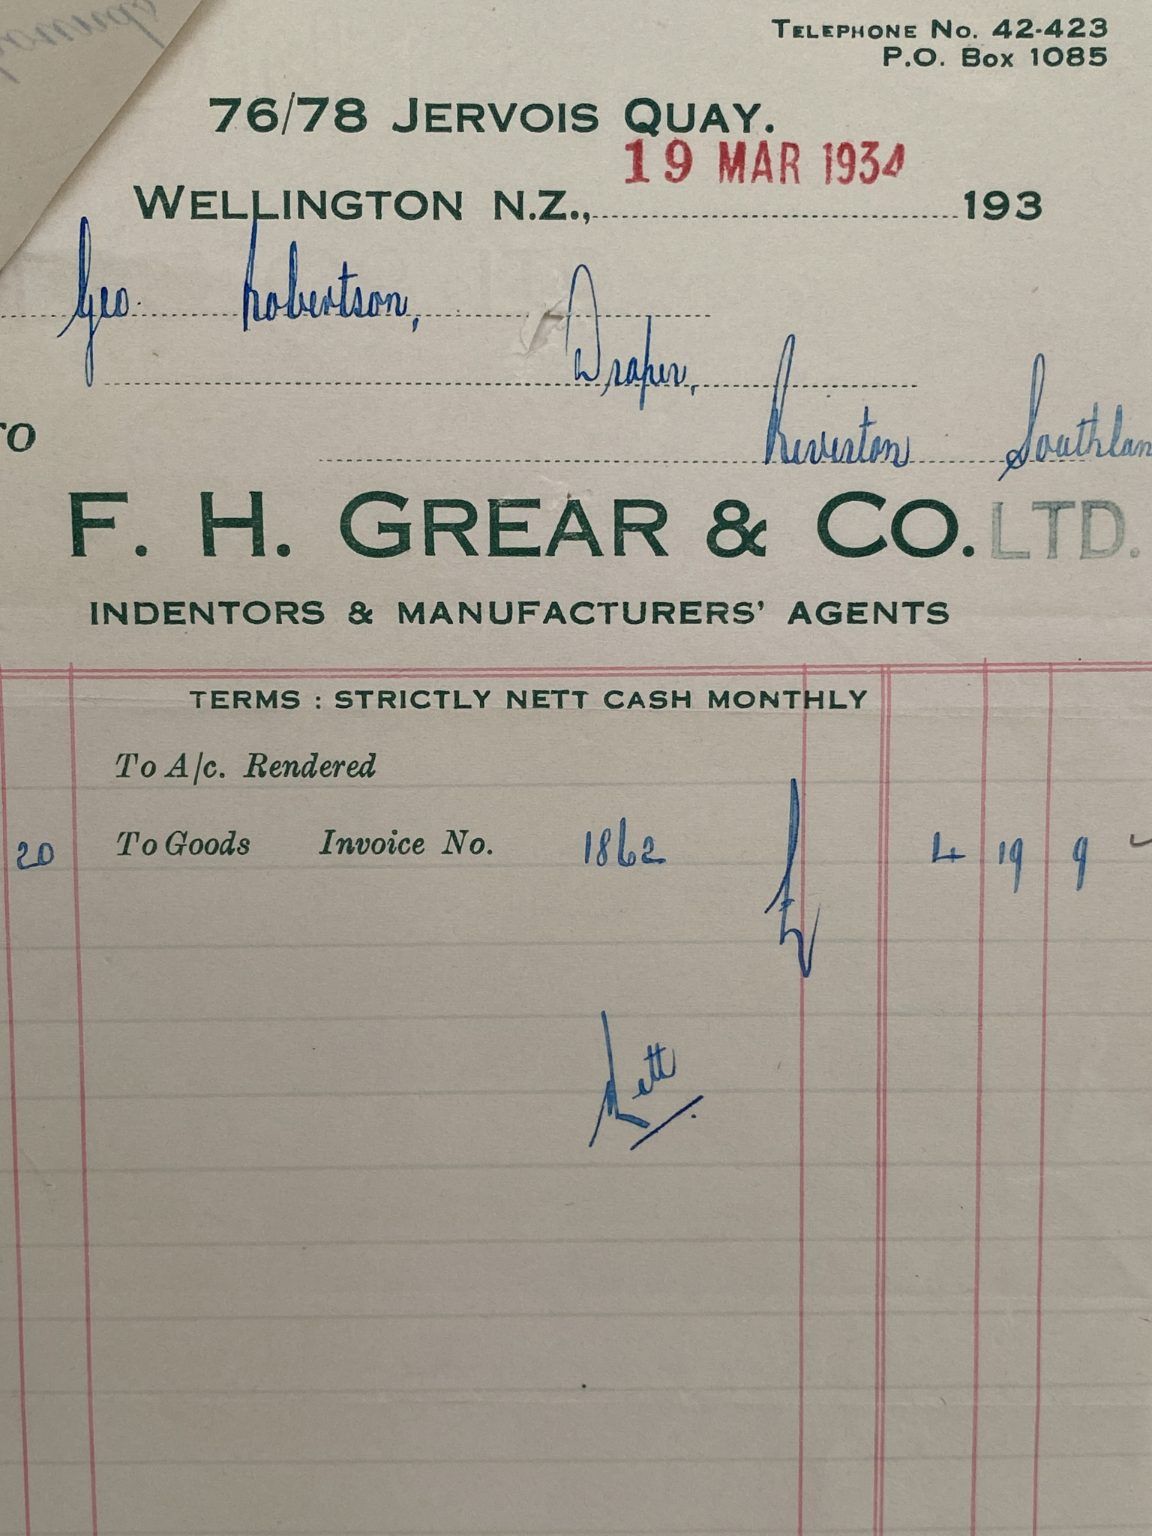 TELEPHONE NO. 42-423
P.O. BOX 1085
76/78 JERVOIS QUAY.
19 MAR 1934
WELLINGTON N.Z., 193
Geo. Robertson,
Draper,
Riverton Southlan
TO
F. H. GREAR & CO. LTD.
INDENTORS & MANUFACTURERS' AGENTS
TERMS : STRICTLY NETT CASH MONTHLY
To A/c. Rendered
20 To Goods Invoice No. 1862 4 19 9
Nett